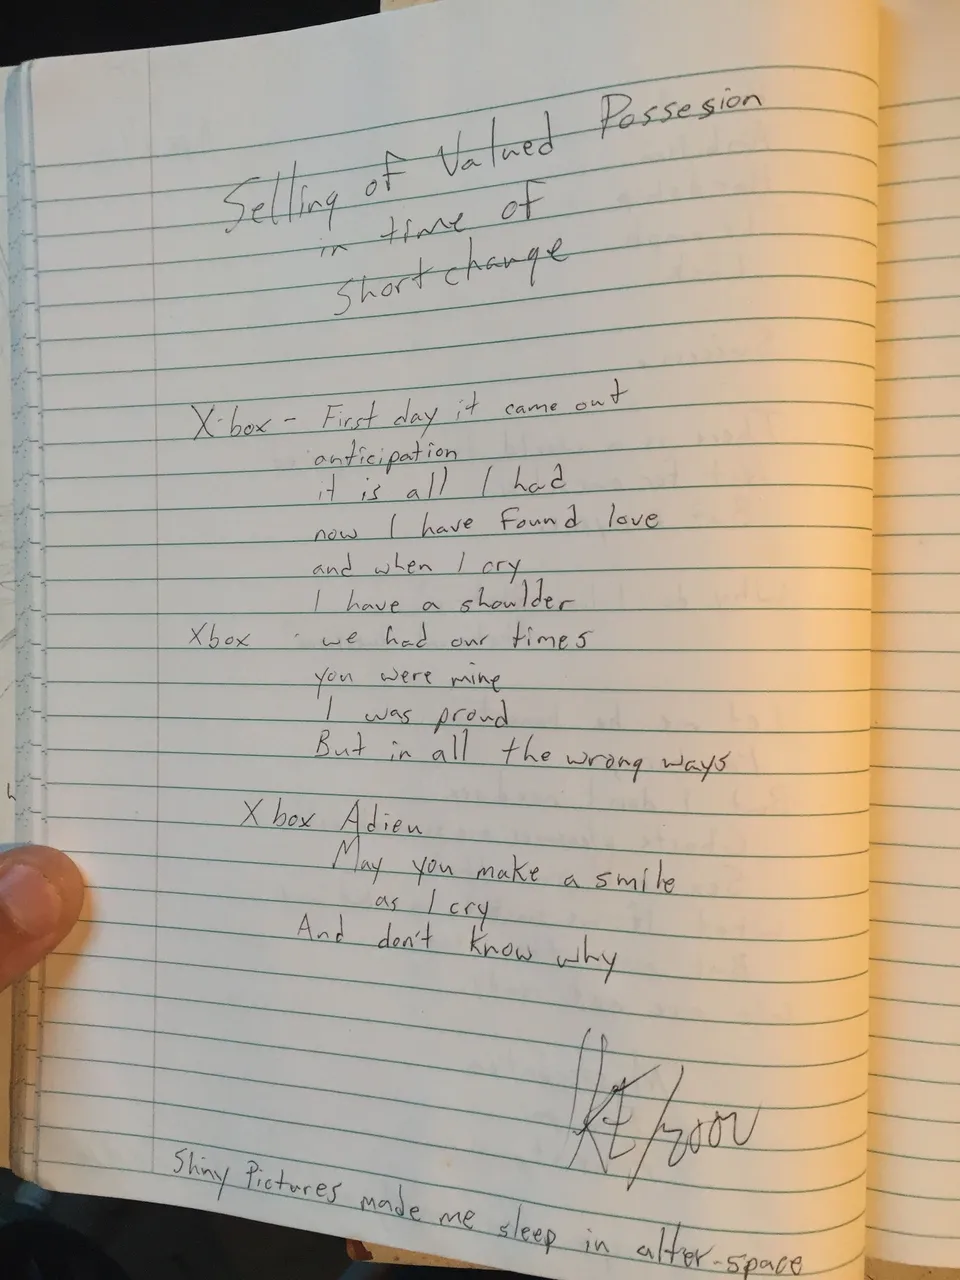 Selling of Valued Possesion
in time of
Short change
X-box - First day it came out
anticipation
it is all I had
now I have found love
and when I cry
I have a shoulder
Xbox : we had our times
you were mine
I was proud
But in all the wrong ways
Xbox Adieu
May you make a smile
as I cry
And don't know why
Shiny Pictures made me sleep in alter-space